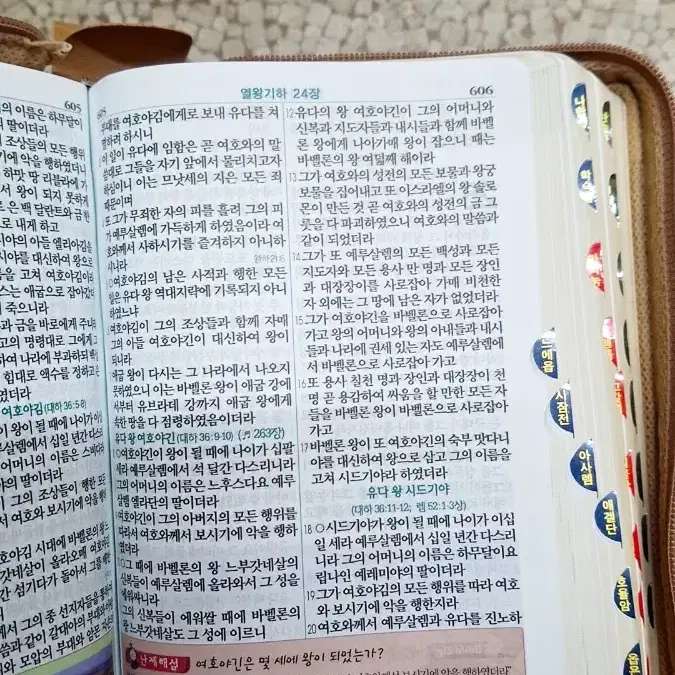 605
의 이름은 하무달이
의 딸이더라
조상들의 모든 행위
기에 악을 행하였더니
하맛 땅 리블라에 가
서 왕이 되지 못하게
로 은 백 달란트와 금 한
로 내게 하고
시야의 아들 엘리아김을
시야를 대신하여 왕으로
을 고쳐 여호야김이라
스는 애굽으로 잡아갔더니
서 죽으니라
과 금을 바로에게 주니라
의 명령대로 그에게
하여 나라에 부과하되 백성
힘대로 액수를 정하고
여호야김 (대하 36:5-8)
왕이 될 때에 나이가 이십
렘에서 십일 년간 다스리
어머니의 이름은 스비다라
의 딸이더라
605
부대를 여호야김에게로 보내 유다를 쳐
멸하려 하시니
이 일이 유다에 임함은 곧 여호와의 말
씀대로 그들을 자기 앞에서 물리치고자
하심이니 이는 므낫세의 지은 모든 죄
때문이며
또 그가 무죄한 자의 피를 흘려 그의 피
가 예루살렘에 가득하게 하였음이라 여
호와께서 사하시기를 즐겨하지 아니하
시니라
여호야김의 남은 사적과 행한 모든
일은 유다 왕 역대지략에 기록되지 아니
하였느냐
여호야김이 그의 조상들과 함께 자매
그의 아들 여호야긴이 대신하여 왕이
되니라
애굽 왕이 다시는 그 나라에서 나오지
못하였으니 이는 바벨론 왕이 애굽 강에
서부터 유브라데 강까지 애굽 왕에게
속한 땅을 다 점령하였음이더라
유다 왕 여호야긴 (대하 36:9-10) (♬ 263장)
여호야긴이 왕이 될 때에 나이가 십팔
세라 예루살렘에서 석 달간 다스리니라
그의 어머니의 이름은 느후스다요 예루
살렘 엘라단의 딸이더라
여호야긴이 그의 아버지의 모든 행위를
따라서 여호와께서 보시기에 악을 행하
였더라
그 때에 바벨론의 왕 느부갓네살의
신복들이 예루살렘에 올라와서 그 성을
에워싸니라
그의 신복들이 에워쌀 때에 바벨론의
왕 느부갓네살도 그 성에 이르니
열왕기하 24장
606
12 유다의 왕 여호야긴이 그의 어머니와
신복과 지도자들과 내시들과 함께 바벨
론 왕에게 나아가매 왕이 잡으니 때는
바벨론의 왕 여덟째 해이라
13 그가 여호와의 성전의 모든 보물과 왕궁
보물을 집어내고 또 이스라엘의 왕 솔로
몬이 만든 것 곧 여호와의 성전의 금 그
릇을 다 파괴하였으니 여호와의 말씀과
같이 되었더라
14 그가 또 예루살렘의 모든 백성과 모든
지도자와 모든 용사 만 명과 모든 장인
과 대장장이를 사로잡아 가매 비천한
자 외에는 그 땅에 남은 자가 없었더라
15 그가 여호야긴을 바벨론으로 사로잡아
가고 왕의 어머니와 왕의 아내들과 내시
들과 나라에 권세 있는 자도 예루살렘에
서 바벨론으로 사로잡아 가고
16 또 용사 칠천 명과 장인과 대장장이 천
명 곧 용감하여 싸움을 할 만한 모든 자
들을 바벨론 왕이 바벨론으로 사로잡아
가고
17 바벨론 왕이 또 여호야긴의 숙부 맛다니
야를 대신하여 왕으로 삼고 그의 이름을
고쳐 시드기야라 하였더라
유다 왕 시드기야
(대하 36:11-12; 렘 52:1-3상)
18 ○시드기야가 왕이 될 때에 나이가 이십
일 세라 예루살렘에서 십일 년간 다스리
니라 그의 어머니의 이름은 하무달이요
립나인 예레미야의 딸이더라
19 그가 여호야김의 모든 행위를 따라 여호
와 보시기에 악을 행한지라
20 여호와께서 예루살렘과 유다를 진노하
난제해설 여호야긴은 몇 세에 왕이 되었는가?
느에욥
시잠전
아사렘
애겔단
호욜암